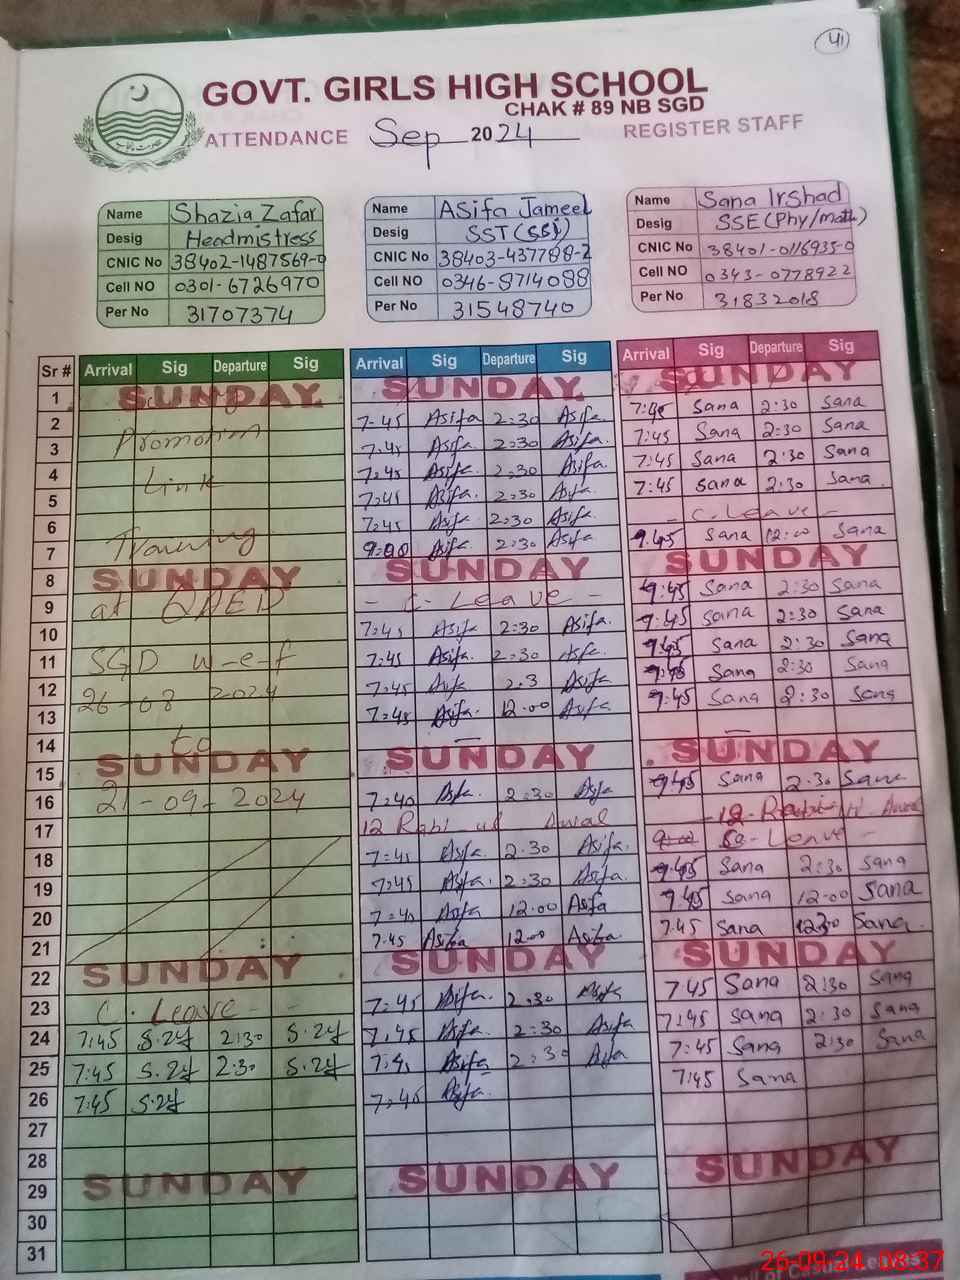 41
GOVT. GIRLS HIGH SCHOOL
CHAK # 89 NB SGD
ATTENDANCE Sep 2024 REGISTER STAFF
Name Shazia Zafar
Desig Headmistress
CNIC No 38402-1487569-0
Cell NO 0301-6726970
Per No 31707374
Name Asifa Jameel
Desig SST (SSi)
CNIC No 38403-437788-2
Cell NO 0346-8714088
Per No 31548740
Name Sana Irshad
Desig SSE(Phy/math)
CNIC No 38401-0116935-0
Cell NO 0343-0778922
Per No 31832018
Sr # Arrival Sig Departure Sig Arrival Sig Departure Sig Arrival Sig Departure Sig
1 SUNDAY SUNDAY SUNDAY
2 7-45 Asifa 2:30 Asifa. 7:45 Sana 2:30 Sana
3 Promotion 7.45 Asifa. 2:30 Asifa. 7:45 Sana 2:30 Sana
4 Link 7:45 Asifa. 2:30 Asifa. 7:45 Sana 2:30 Sana
5 7:45 Asifa. 2:30 Asifa. 7:45 Sana 2:30 Sana.
6 7:45 Asifa. 2:30 Asifa. - C. Leave -
7 Training 9:00 Asifa. 2:30 Asifa 9.45 Sana 12:00 Sana
8 SUNDAY SUNDAY SUNDAY
9 at QAED - C- Leave - 7:45 Sana 2:30 Sana
10 7:45 Asifa 2:30 Asifa. 7:45 Sana 2:30 Sana
11 SGD w-e-f 7:45 Asifa. 2:30 Asfa. 7:45 Sana 2:30 Sana
12 26-08 2024 7:45 Asifa 2.3 Asifa 7:45 Sana 2:30 Sana
13 7:45 Asifa. 12.00 Asifa 7:45 Sana 2:30 Sana
14 to
15 SUNDAY SUNDAY SUNDAY
16 21-09-2024 7:40 Asfa. 2:30 Asfa 7:45 Sana 2:30 Sana
17 12 Rabi ul Awal 12-Rabi ul Awal
18 7:45 Asfa. 2.30 Asifa. C-Leave -
19 7:45 Asfa. 2:30 Asifa. 7:45 Sana 2:30 Sana
20 7:40 Asfa 12:00 Asifa 7.45 Sana 12:00 Sana
21 7.45 Asifa 12:00 Asifa. 7.45 Sana Sana.
22 SUNDAY SUNDAY SUNDAY
23 C. Leave - 7:45 Asifa. 2:30 Asifa 7:45 Sana 2:30 Sana
24 7:45 2:30 7:45 Asifa. 2:30 Asifa 7:45 Sana 2:30 Sana
25 7:45 2:30 Asifa 2:30 Asifa 7:45 Sana 2:30 Sana
26 7:45 7:45 Asifa. 7:45 Sana
27
28
29 SUNDAY SUNDAY SUNDAY
30
31
26-09-24 08:37